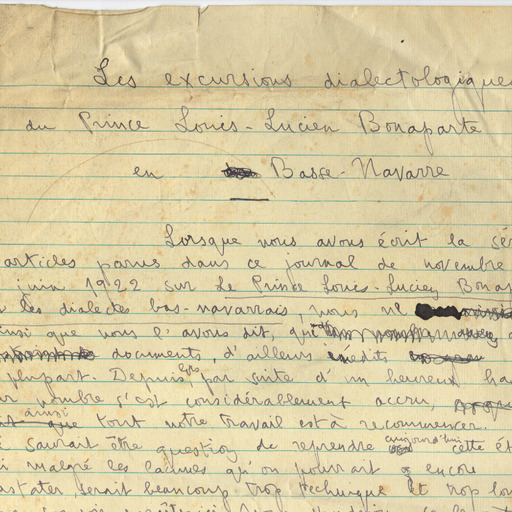 Les excursions dialectologiques
du Prince Louis-Lucien Bonaparte
en Basse-Navarre
Lorsque nous avons écrit la sér
articles parus dans ce journal de novembre
juin 1922 sur Le Prince Louis-Lucien Bonap
les dialectes bas-navarrais, nous n'
insi que nous l'avons dit, que
documents, d'ailleurs inédits
plupart. Depuis lors, par suite d'un heureux ha
ur nombre s'est considérablement accru,
ainsi
que tout notre travail est à recommencer.
saurait être question de reprendre aujourd'hui cette ét
i malgré les lacunes qu'on pourrait y encore
nstater, serait beaucoup trop technique et trop lon